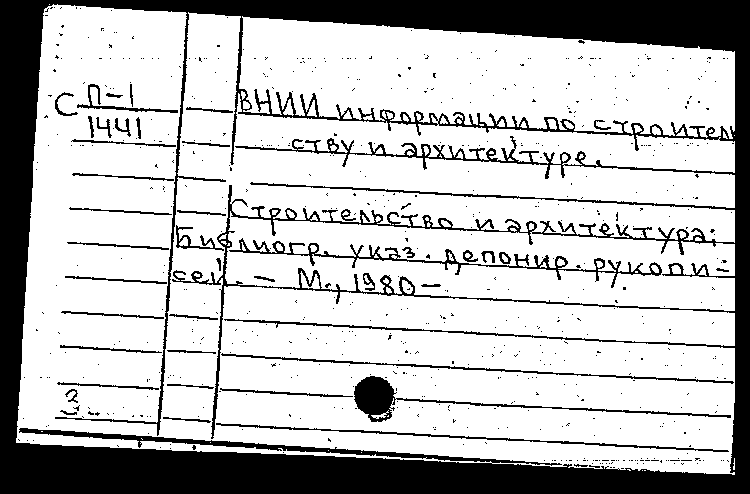 С П-1
1441
ВНИИ информации по строитель
ству и архитектуре.
Строительство и архитектура:
Библиогр. указ. депонир. рукопи-
сей. — М., 1980—
3